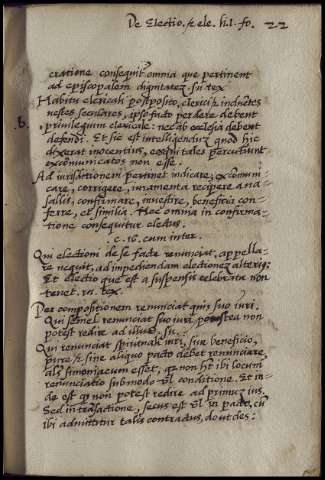 De Electio. & ele. li. I. fo. 22
cratione consequit omnia que pertinent
ad episcopalem dignitatez. in tex
Habitu clericali postposito, clerici & induētes
b. vestes seculares, ipso facto perdere debent
privilegium clericale: nec ab ecclesia debent
defendi. Et sic est intelligendum quod hic
dixerat inocentius, eos qui tales percutiunt
excomunicatos non esse.
Ad iurisdictionem pertinet iudicare, excomuni-
care, corrigere, iuramenta recipere a va-
sallis, confirmare, investire, beneficia con-
ferre, et similia. Hec omnia in confirma-
tione consequitur electus.
c. 16. cum inter.
Qui electioni de se facte renunciat, appella-
re nequit, ad impediendam electionez alterius:
Et electio que est a suspensis celebrata non
tenet. in tex.
Per compositionem renunciat quis suo iuri.
Qui semel renunciat suo iuri postea non
potest redire ad illud. in.
Qui renunciat spirituali iuri, sive beneficio,
pure & sine aliquo pacto debet renunciare,
aliâs simoniacum esset, & non ht ibi locum
renunciatio submodo vl conditione. Et in-
de est qp non potest redire ad primuz ius.
Sed in trāsactione, secus est vl in pacto, cū
ibi admittitur talis contractus, do ut des: